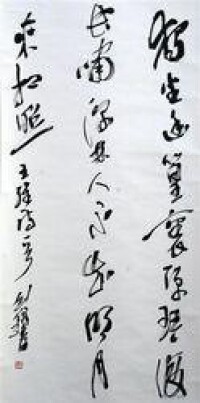 獨坐幽篁裏彈琴復
長嘯深林人不知明月
來相照
王維詩